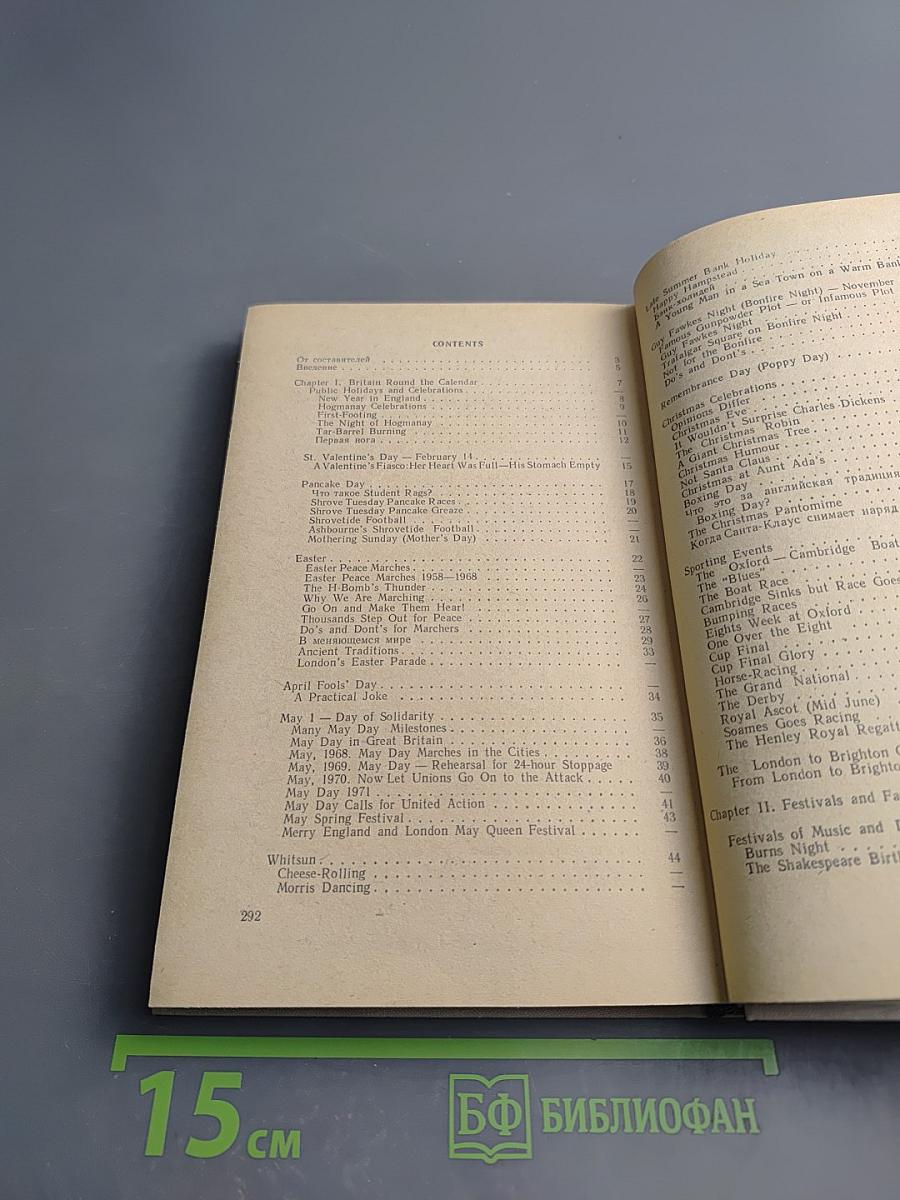 CONTENTS
От составителей . . . 3
Введение . . . 5
Chapter I. Britain Round the Calendar . . . 7
Public Holidays and Celebrations . . . —
New Year in England . . . 8
Hogmanay Celebrations . . . 9
First-Footing . . . —
The Night of Hogmanay . . . 10
Tar-Barrel Burning . . . 11
Первая нога . . . 12
St. Valentine's Day — February 14 . . . —
A Valentine's Fiasco: Her Heart Was Full—His Stomach Empty 15
Pancake Day . . . 17
Что такое Student Rags? . . . 18
Shrove Tuesday Pancake Races . . . 19
Shrove Tuesday Pancake Greaze . . . 20
Shrovetide Football . . . —
Ashbourne's Shrovetide Football . . . —
Mothering Sunday (Mother's Day) . . . 21
Easter . . . 22
Easter Peace Marches . . . —
Easter Peace Marches 1958—1968 . . . 23
The H-Bomb's Thunder . . . 24
Why We Are Marching . . . 26
Go On and Make Them Hear! . . . —
Thousands Step Out for Peace . . . 27
Do's and Dont's for Marchers . . . 28
В меняющемся мире . . . 29
Ancient Traditions . . . 33
London's Easter Parade . . . —
April Fools' Day . . . —
A Practical Joke . . . 34
May 1 — Day of Solidarity . . . 35
Many May Day Milestones . . . —
May Day in Great Britain . . . 36
May, 1968. May Day Marches in the Cities . . . 38
May, 1969. May Day — Rehearsal for 24-hour Stoppage 39
May, 1970. Now Let Unions Go On to the Attack . . . 40
May Day 1971 . . . —
May Day Calls for United Action . . . 41
May Spring Festival . . . 43
Merry England and London May Queen Festival . . . —
Whitsun . . . 44
Cheese-Rolling . . . —
Morris Dancing . . . —
292
Late Summer Bank Holiday
Happy Hampstead
Банк-холидей
A Young Man in a Sea Town on a Warm Bank
Guy Fawkes Night (Bonfire Night) — November
Famous Gunpowder Plot — or Infamous Plot
Guy Fawkes Night
Trafalgar Square on Bonfire Night
Not for the Bonfire
Do's and Dont's
Remembrance Day (Poppy Day)
Christmas Celebrations
Opinions Differ
Christmas Eve
It Wouldn't Surprise Charles Dickens
The Christmas Robin
A Giant Christmas Tree
Christmas Humour
Not Santa Claus
Christmas at Aunt Ada's
Boxing Day
Что это за английская традиция
Boxing Day?
The Christmas Pantomime
Когда Санта-Клаус снимает наряд
Sporting Events
The Oxford—Cambridge Boat
The "Blues"
The Boat Race
Cambridge Sinks but Race Goes
Bumping Races
Eights Week at Oxford
One Over the Eight
Cup Final
Cup Final Glory
Horse-Racing
The Grand National
The Derby
Royal Ascot (Mid June)
Soames Goes Racing
The Henley Royal Regatt
The London to Brighton
From London to Brighto
Chapter II. Festivals and Fa
Festivals of Music and
Burns Night
The Shakespeare Birt
15 см
БФ БИБЛИОФАН